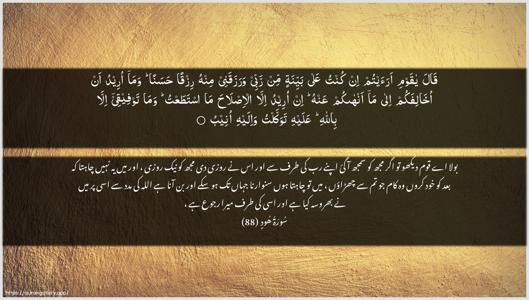 قَالَ يٰقَوْمِ اَرَءَيْتُمْ اِنْ كُنْتُ عَلٰى بَيِّنَةٍ مِّنْ رَّبِّىْ وَرَزَقَنِىْ مِنْهُ رِزْقًا حَسَنًا ؕ وَمَاۤ اُرِيْدُ اَنْ
اُخَالِفَكُمْ اِلٰى مَاۤ اَنْهٰٮكُمْ عَنْهُ ؕ اِنْ اُرِيْدُ اِلَّا الْاِصْلَاحَ مَا اسْتَطَعْتُ ؕ وَمَا تَوْفِيْقِىْۤ اِلَّا
بِاللّٰهِ ؕ عَلَيْهِ تَوَكَّلْتُ وَاِلَيْهِ اُنِيْبُ ۝
بولا اے قوم دیکھو تو اگر مجھ کو سمجھ آگئی اپنے رب کی طرف سے اور اس نے روزی دی مجھ کو نیک روزی ، اور میں یہ نہیں چاہتا کہ
بعد کو خود کروں وہ کام جو تم سے چھڑاؤں ، میں تو چاہتا ہوں سنوارنا جہاں تک ہو سکے اور بن آنا ہے اللہ کی مدد سے اسی پر میں
نے بھروسہ کیا ہے اور اسی کی طرف میرا رجوع ہے ،
سُوْرَةُ هُوْدٍ (88)